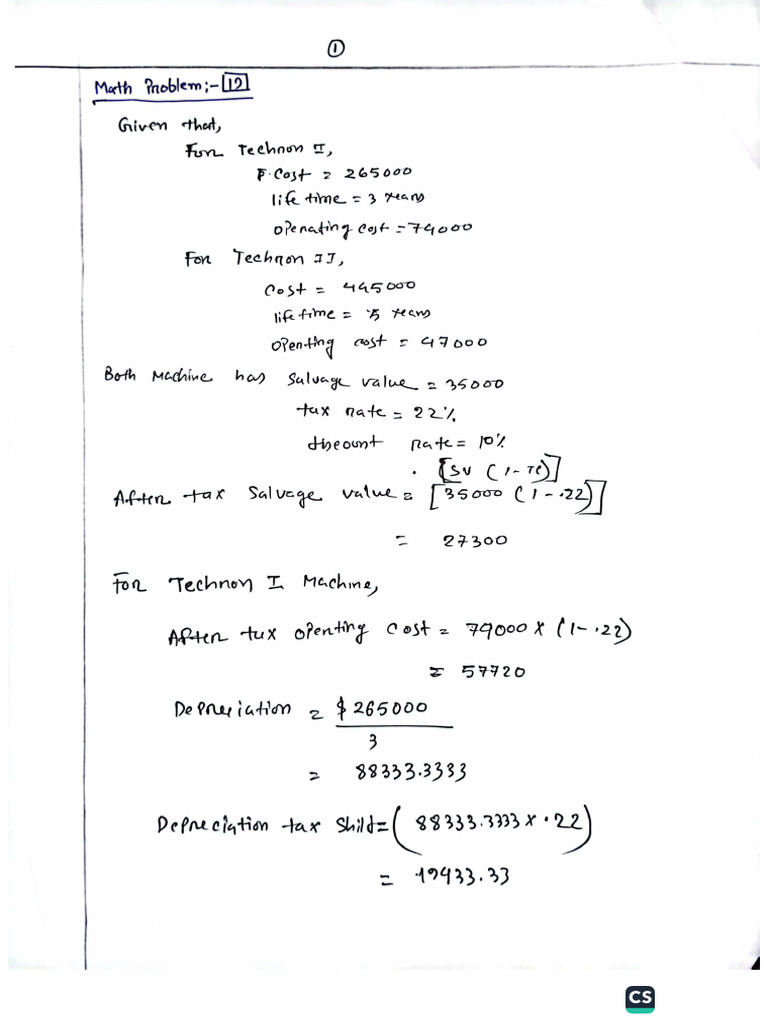 ①
Math Problem:- 12
Given that,
For Technon I,
F. Cost = 265000
life time = 3 years
operating cost = 74000
For Technon II,
Cost = 445000
life time = 5 years
openting cost = 47000
Both Machine has Salvage value = 35000
tax rate = 22%
discount rate = 10%
[SV (1-TC)]
After tax Salvage value = [35000 (1-.22)]
= 27300
For Technon I Machine,
After tax openting Cost = 74000 X (1-.22)
= 57720
Depreciation = $265000
3
= 88333.3333
Depreciation tax Shild = (88333.3333 X .22)
= 19433.33
CS